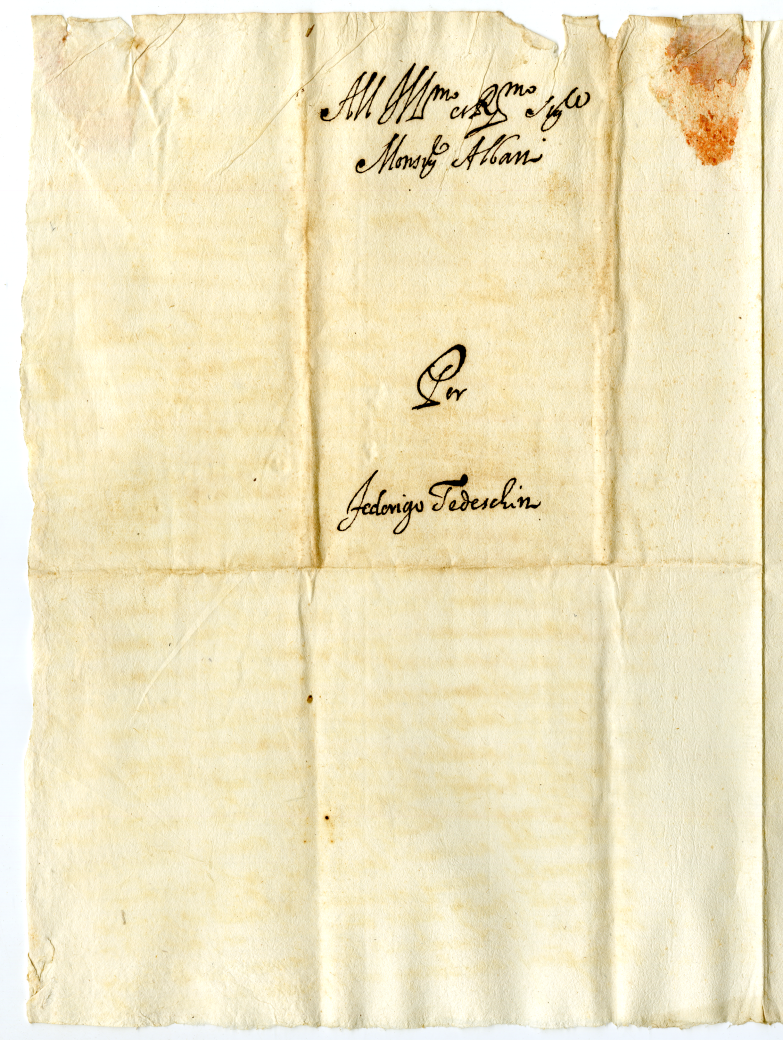 All Ill.mo et R.mo Sig.re
Monsig.r Albani
Per
Federigo Tedeschini